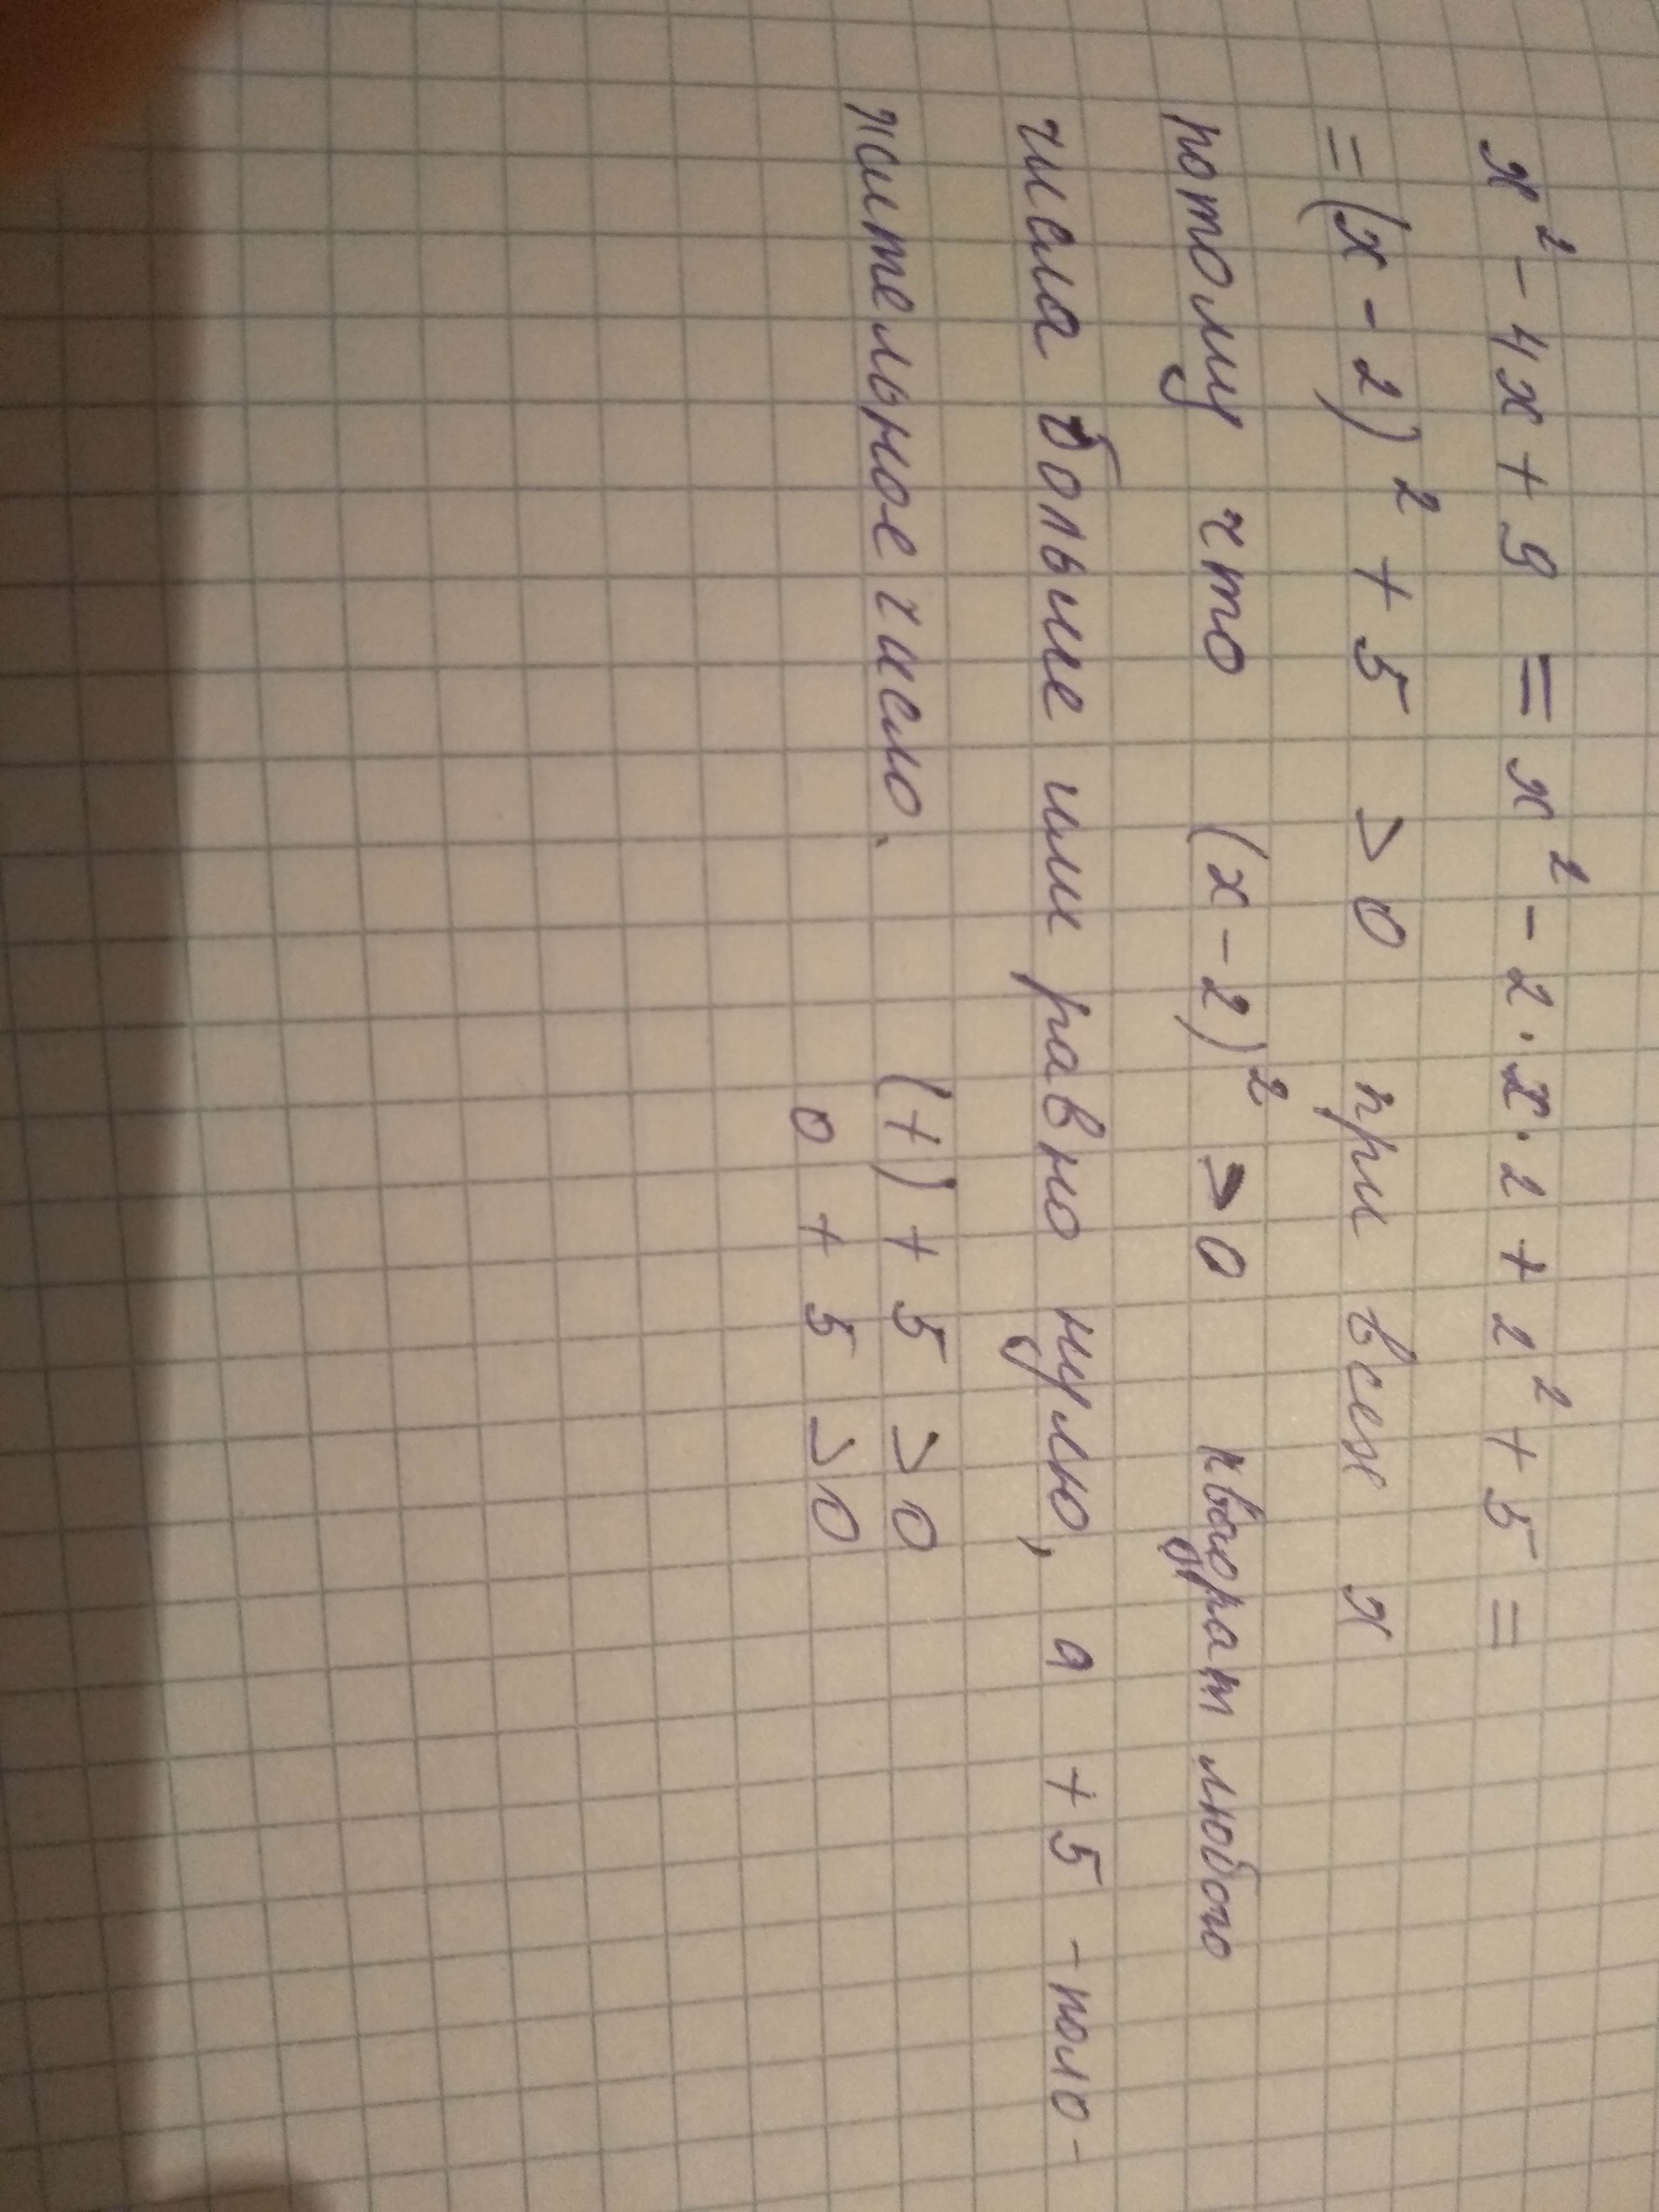 x² - 4x + 9 = x² - 2·x·2 + 2² + 5 =
= (x - 2)² + 5 > 0 при всех x
потому что (x - 2)² ⩾ 0 квадрат любого
числа больше или равно нулю, а +5 - поло-
жительное число.
(+) + 5 > 0
0 + 5 > 0